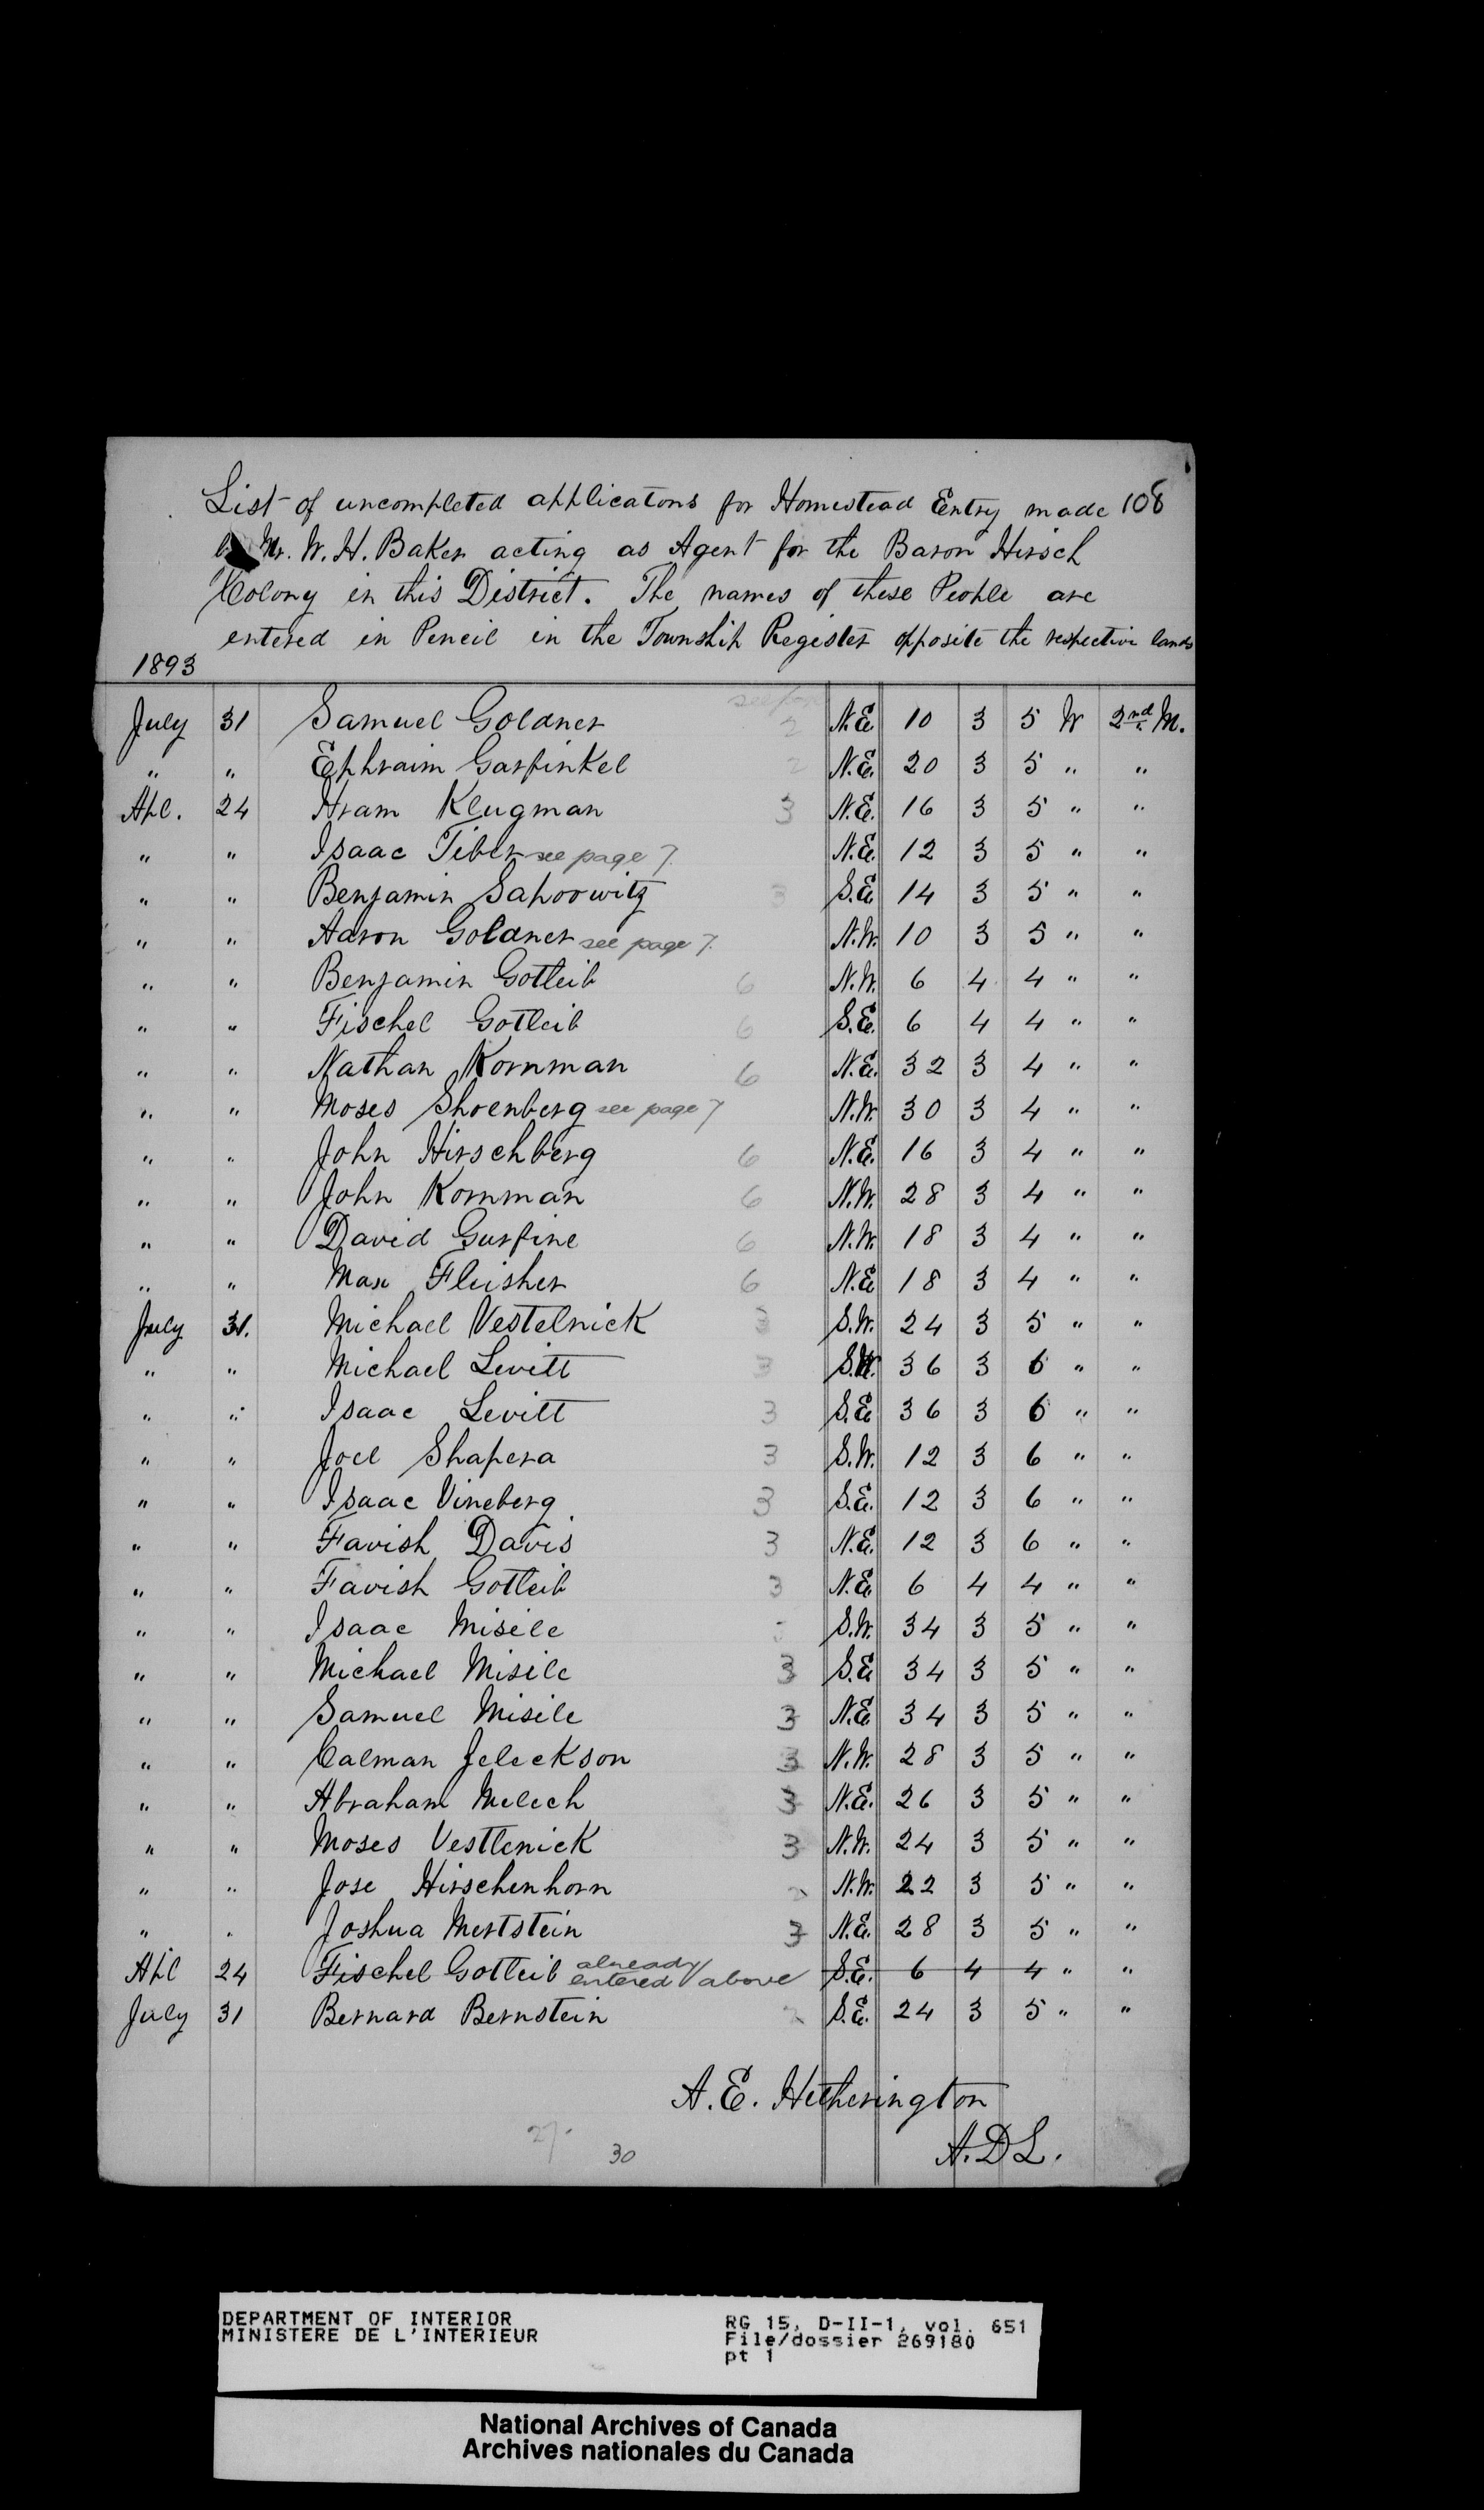 List of uncompleted applicatons for Homestead Entry made 108
by Mr. W. H. Baker acting as Agent for the Baron Hirsch
Colony in this District. The names of these People are
entered in Pencil in the Township Register opposite the respective lands
1893
July 31 Samuel Goldner 2 N.E. 10 3 5 W 2nd M.
" " Ephraim Garfinkel 2 N.E. 20 3 5 " "
Apl. 24 Hram Klugman 3 N.E. 16 3 5 " "
" " Isaac Tiber see page 7. N.E. 12 3 5 " "
" " Benjamin Saporowitz 3 S.E. 14 3 5 " "
" " Aaron Goldner see page 7. N.W. 10 3 5 " "
" " Benjamin Gotleib 6 N.W. 6 4 4 " "
" " Fischel Gotleib 6 S.E. 6 4 4 " "
" " Nathan Kornman 6 N.E. 32 3 4 " "
" " Moses Shoenberg see page 7 N.W. 30 3 4 " "
" " John Hirschberg 6 N.E. 16 3 4 " "
" " John Kornman 6 N.W. 28 3 4 " "
" " David Gurfine 6 N.W. 18 3 4 " "
" " Max Fleisher 6 N.E. 18 3 4 " "
July 31. Michael Vestelnick 3 S.W. 24 3 5 " "
" " Michael Levitt 3 S.W. 36 3 6 " "
" " Isaac Levitt 3 S.E. 36 3 6 " "
" " Joel Shapera 3 S.W. 12 3 6 " "
" " Isaac Vineberg 3 S.E. 12 3 6 " "
" " Favish Davis 3 N.E. 12 3 6 " "
" " Favish Gotleib 3 N.E. 6 4 4 " "
" " Isaac Misile S.W. 34 3 5 " "
" " Michael Misile 3 S.E. 34 3 5 " "
" " Samuel Misile 3 N.E. 34 3 5 " "
" " Calman Jeleckson 3 N.W. 28 3 5 " "
" " Abraham Melech 3 N.E. 26 3 5 " "
" " Moses Vestlenick 3 N.W. 24 3 5 " "
" " Jose Hirschenhorn 2 N.W. 22 3 5 " "
" " Joshua Mertstein 3 N.E. 28 3 5 " "
Apl 24 Fischel Gotleib already entered above S.E. 6 4 4 " "
July 31 Bernard Bernstein 2 S.E. 24 3 5 " "
A. E. Hetherington
27.
30
A.D.L.
DEPARTMENT OF INTERIOR
MINISTERE DE L'INTERIEUR
RG 15, D-II-1, vol. 651
File/dossier 269180
pt 1
National Archives of Canada
Archives nationales du Canada